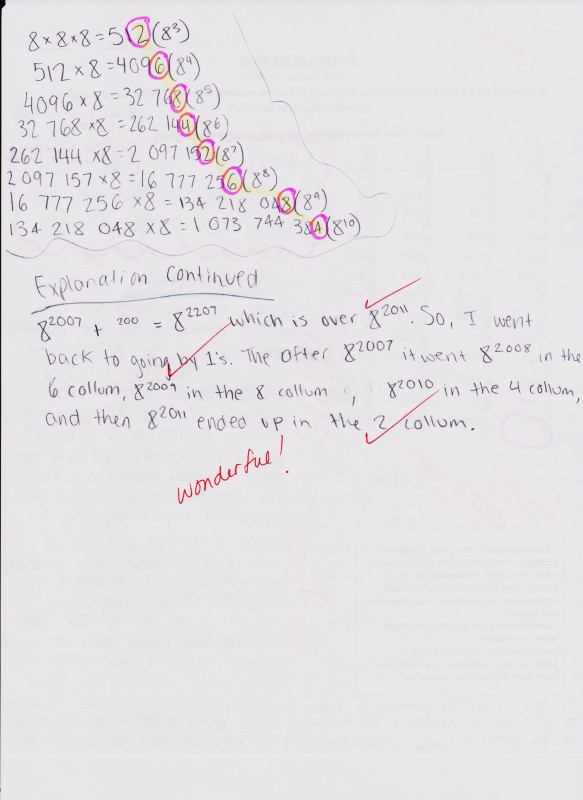 8 x 8 x 8 = 512 (8³)
512 x 8 = 4096 (8⁴)
4096 x 8 = 32 768 (8⁵)
32 768 x 8 = 262 144 (8⁶)
262 144 x 8 = 2 097 152 (8⁷)
2 097 157 x 8 = 16 777 256 (8⁸)
16 777 256 x 8 = 134 218 048 (8⁹)
134 218 048 x 8 = 1 073 744 384 (8¹⁰)
Explanation Continued
8²⁰⁰⁷ + ²⁰⁰ = 8²²⁰⁷ which is over 8²⁰¹¹. So, I went
back to going by 1's. The after 8²⁰⁰⁷ it went 8²⁰⁰⁸ in the
6 collum, 8²⁰⁰⁹ in the 8 collum, 8²⁰¹⁰ in the 4 collum,
and then 8²⁰¹¹ ended up in the 2 collum.
wonderful!